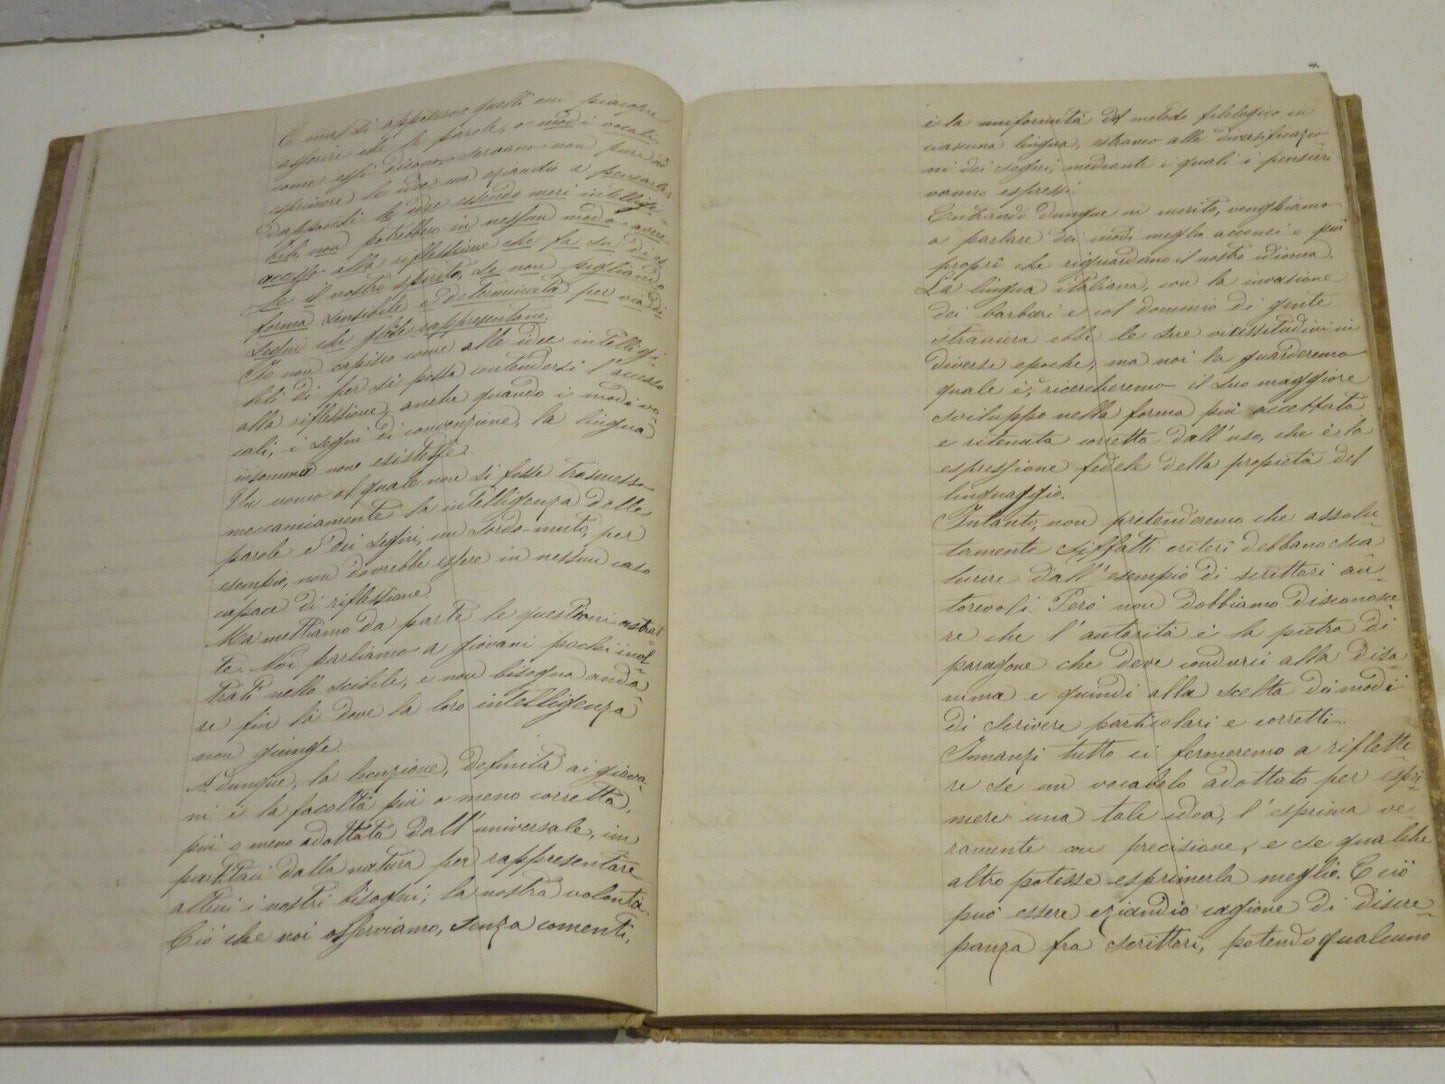 E mal si apposero quelli cui piacque
asserire che le parole, o modi vocali,
come essi dicono, servano non pure ad
esprimere le idee ma eziandio a pensarle;
dappoichè le idee essendo meri intelligi-
bili, non potrebbero in nessun modo avere
accesso alla riflessione che fa su di es
se il nostro spirito, se non pigliando
forma sensibile e determinata per via di
segni che glele rappresentano.
Io non capisco come alle idee intelligi-
bili di per sè possa contendersi l'accesso
alla riflessione, anche quando i modi vo-
cali, i segni di convenzione, la lingua
insomma non esistesse.
Un uomo al quale non si fosse trasmessa
meccanicamente la intelligenza delle
parole e dei segni, un sordo-muto, per
esempio, non dovrebbe essere in nessun caso
capace di riflessione.
Ma mettiamo da parte le questioni astrat-
te. Noi parliamo a giovani pochi inol-
trati nello scibile, e non bisogna anda-
re fin là dove la loro intelligenza
non giunge.
Adunque, la locuzione, definita ai giova-
ni è la facoltà più o meno corretta,
più o meno adottata dall'universale, im
partitaci dalla natura per rappresentare
altrui i nostri bisogni; la nostra volontà.
Ciò che noi osserviamo, senza comenti,
è la uniformità del metodo filologico in
ciascuna lingua, estraneo alle diversificazio-
ni dei segni, mediante i quali i pensieri
vanno espressi.
Entrando dunque in merito, venghiamo
a parlare dei modi meglio accensi e più
propri che riguardano il nostro idioma.
La lingua italiana, con la invasione
dei barbari e col dominio di gente
straniera ebbe le sue vicissitudini in
diverse epoche, ma noi la guarderemo
quale è, ricercheremo il suo maggiore
sviluppo nella forma più accettata
e ritenuta corretta dall'uso, che è la
espressione fedele della propietà del
linguaggio.
Intanto, non pretenderemo che assolu-
tamente siffatti criteri debbano sca-
turire dall'esempio di scrittori au-
torevoli. Però non dobbiamo disconosce-
re che l'autorità è la pietra di
paragone che deve condurci alla disa-
mina e quindi alla scelta dei modi
di scrivere particolari e corretti.
Innanzi tutto ci fermeremo a riflette
re se un vocabolo adottato per espri-
mere una tale idea, l'esprima ve-
ramente con precisione, e se qualche
altro potesse esprimerla meglio. E ciò
può essere eziandio cagione di discre-
panza fra scrittori, potendo qualcuno